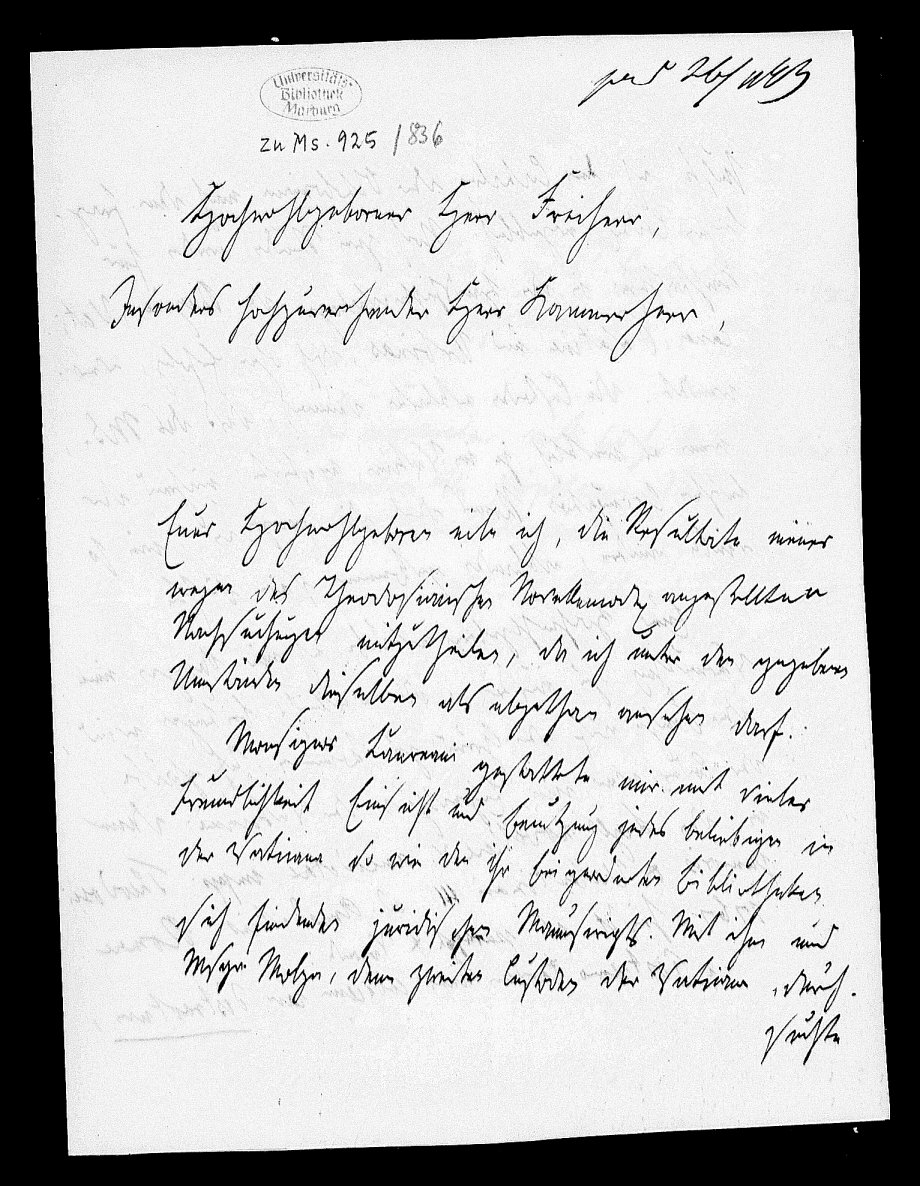 Universitäts-
Bibliothek
Marburg
zu Ms. 925 /836
Hochwohlgeborner Herr Freiherr,
Insonders hochzuverehrender Herr Kammerherr,
Euer Hochwohlgeboren eile ich, die Resultate meiner
wegen des Theodosianischen Novellencodex angestellten
Nachsuchungen mitzutheilen, da ich unter den gegebenen
Umständen dieselben als abgethan ansehen darf.
Monsignor Laureani gestattete mir mit vieler
Freundlichkeit Einsicht und Benutzung jedes beliebigen in
der Vaticana so wie den ihr beigeordneten Bibliotheken
sich findenden juridischen Manuscripts. Mit ihm und
Msgr Molza, dem zweiten Custoden der Vaticana, durch-
suchte